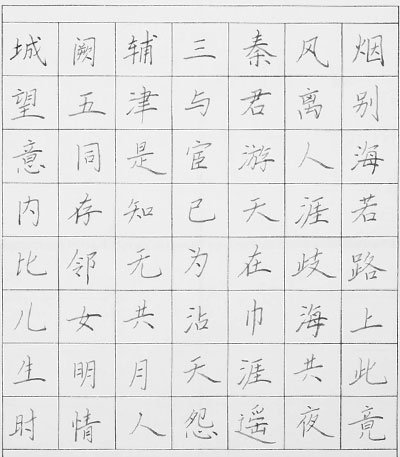 城阙辅三秦风烟
望五津与君离别
意同是宦游人海
内存知已天涯若
比邻无为在歧路
儿女共沾巾海上
生明月天涯共此
时情人怨遥夜竟